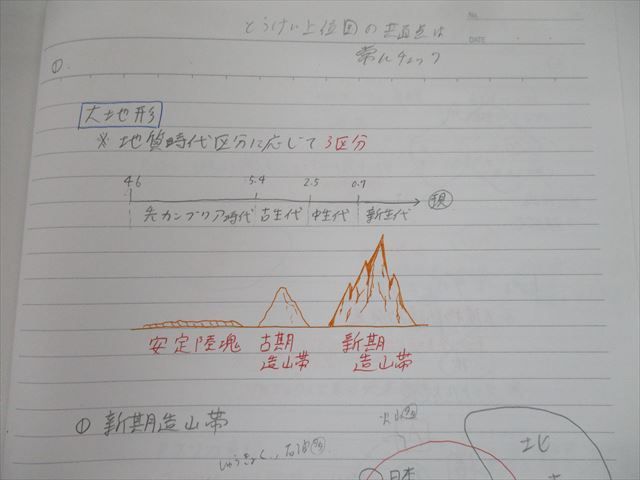 No.
DATE
とうけい上位国の共通点は
常にチェック
①
大地形
※ 地質時代区分に応じて3区分
46 5.4 2.5 0.7
先カンブリア時代 古生代 中性代 新生代 現
安定陸塊 古期造山帯 新期造山帯
① 新期造山帯
火山
しゅうきょく、石油
日本
北